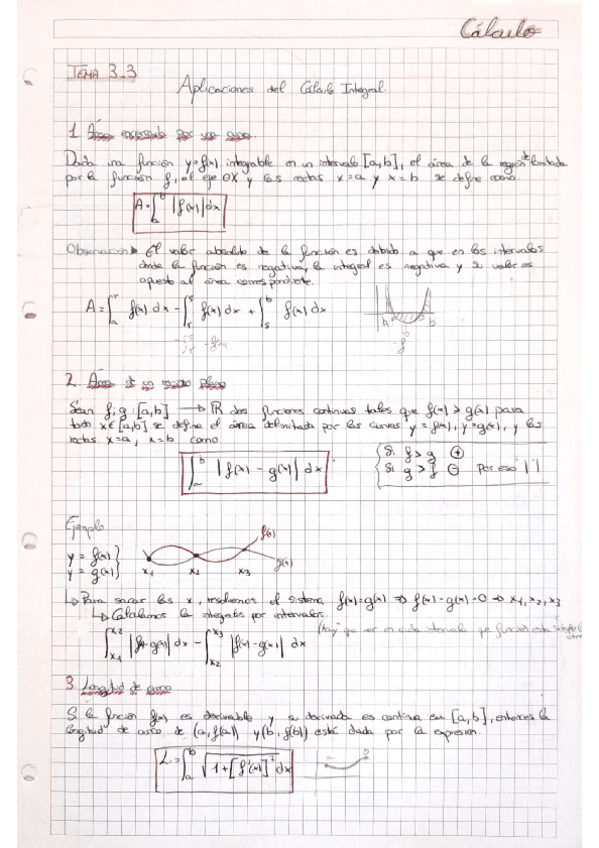 Cálculo
TEMA 3.3
Aplicaciones del Cálculo Integral.
1 Área encerrada por una curva.
Dada una función y=f(x) integrable en un intervalo [a,b], el área de la región delimitada
por la función f, el eje OX y las rectas x=a y x=b se define como.
A=∫_a^b |f(x)| dx
Observación → El valor absoluto de la función es debido a que en los intervalos
donde la función es negativa, la integral es negativa y su valor es
opuesto al área correspondiente.
A = ∫_a^r f(x) dx - ∫_r^s f(x) dx + ∫_s^b f(x) dx
a b
-f
2. Área de un recinto plano
Sean f,g: [a,b] → ℝ dos funciones continuas tales que f(x) > g(x) para
todo x∈[a,b] se define el área delimitada por las curvas y=f(x), y=g(x), y las
rectas x=a, x=b como
∫_a^b |f(x) - g(x)| dx
Si f>g ⊕
Si g>f ⊖ Por eso | |
Ejemplo
y = f(x)
y = g(x)
x1 x2 x3
g(x)
↳ Para sacar las x, resolvemos el sistema f(x)=g(x) ⇒ f(x)-g(x)=0 ⇒ x1, x2, x3
↳ Calculamos las integrales por intervalos.
∫_x1^x2 |f(x)-g(x)| dx - ∫_x2^x3 |f(x)-g(x)| dx
(hay que ver en cada intervalo que función está
3 Longitud de arco
Si la función f(x) es derivable y su derivada es continua en [a,b], entonces la
longitud de arco de (a, f(a)) y (b, f(b)) está dada por la expresión.
L = ∫_a^b √1+[f'(x)]² dx